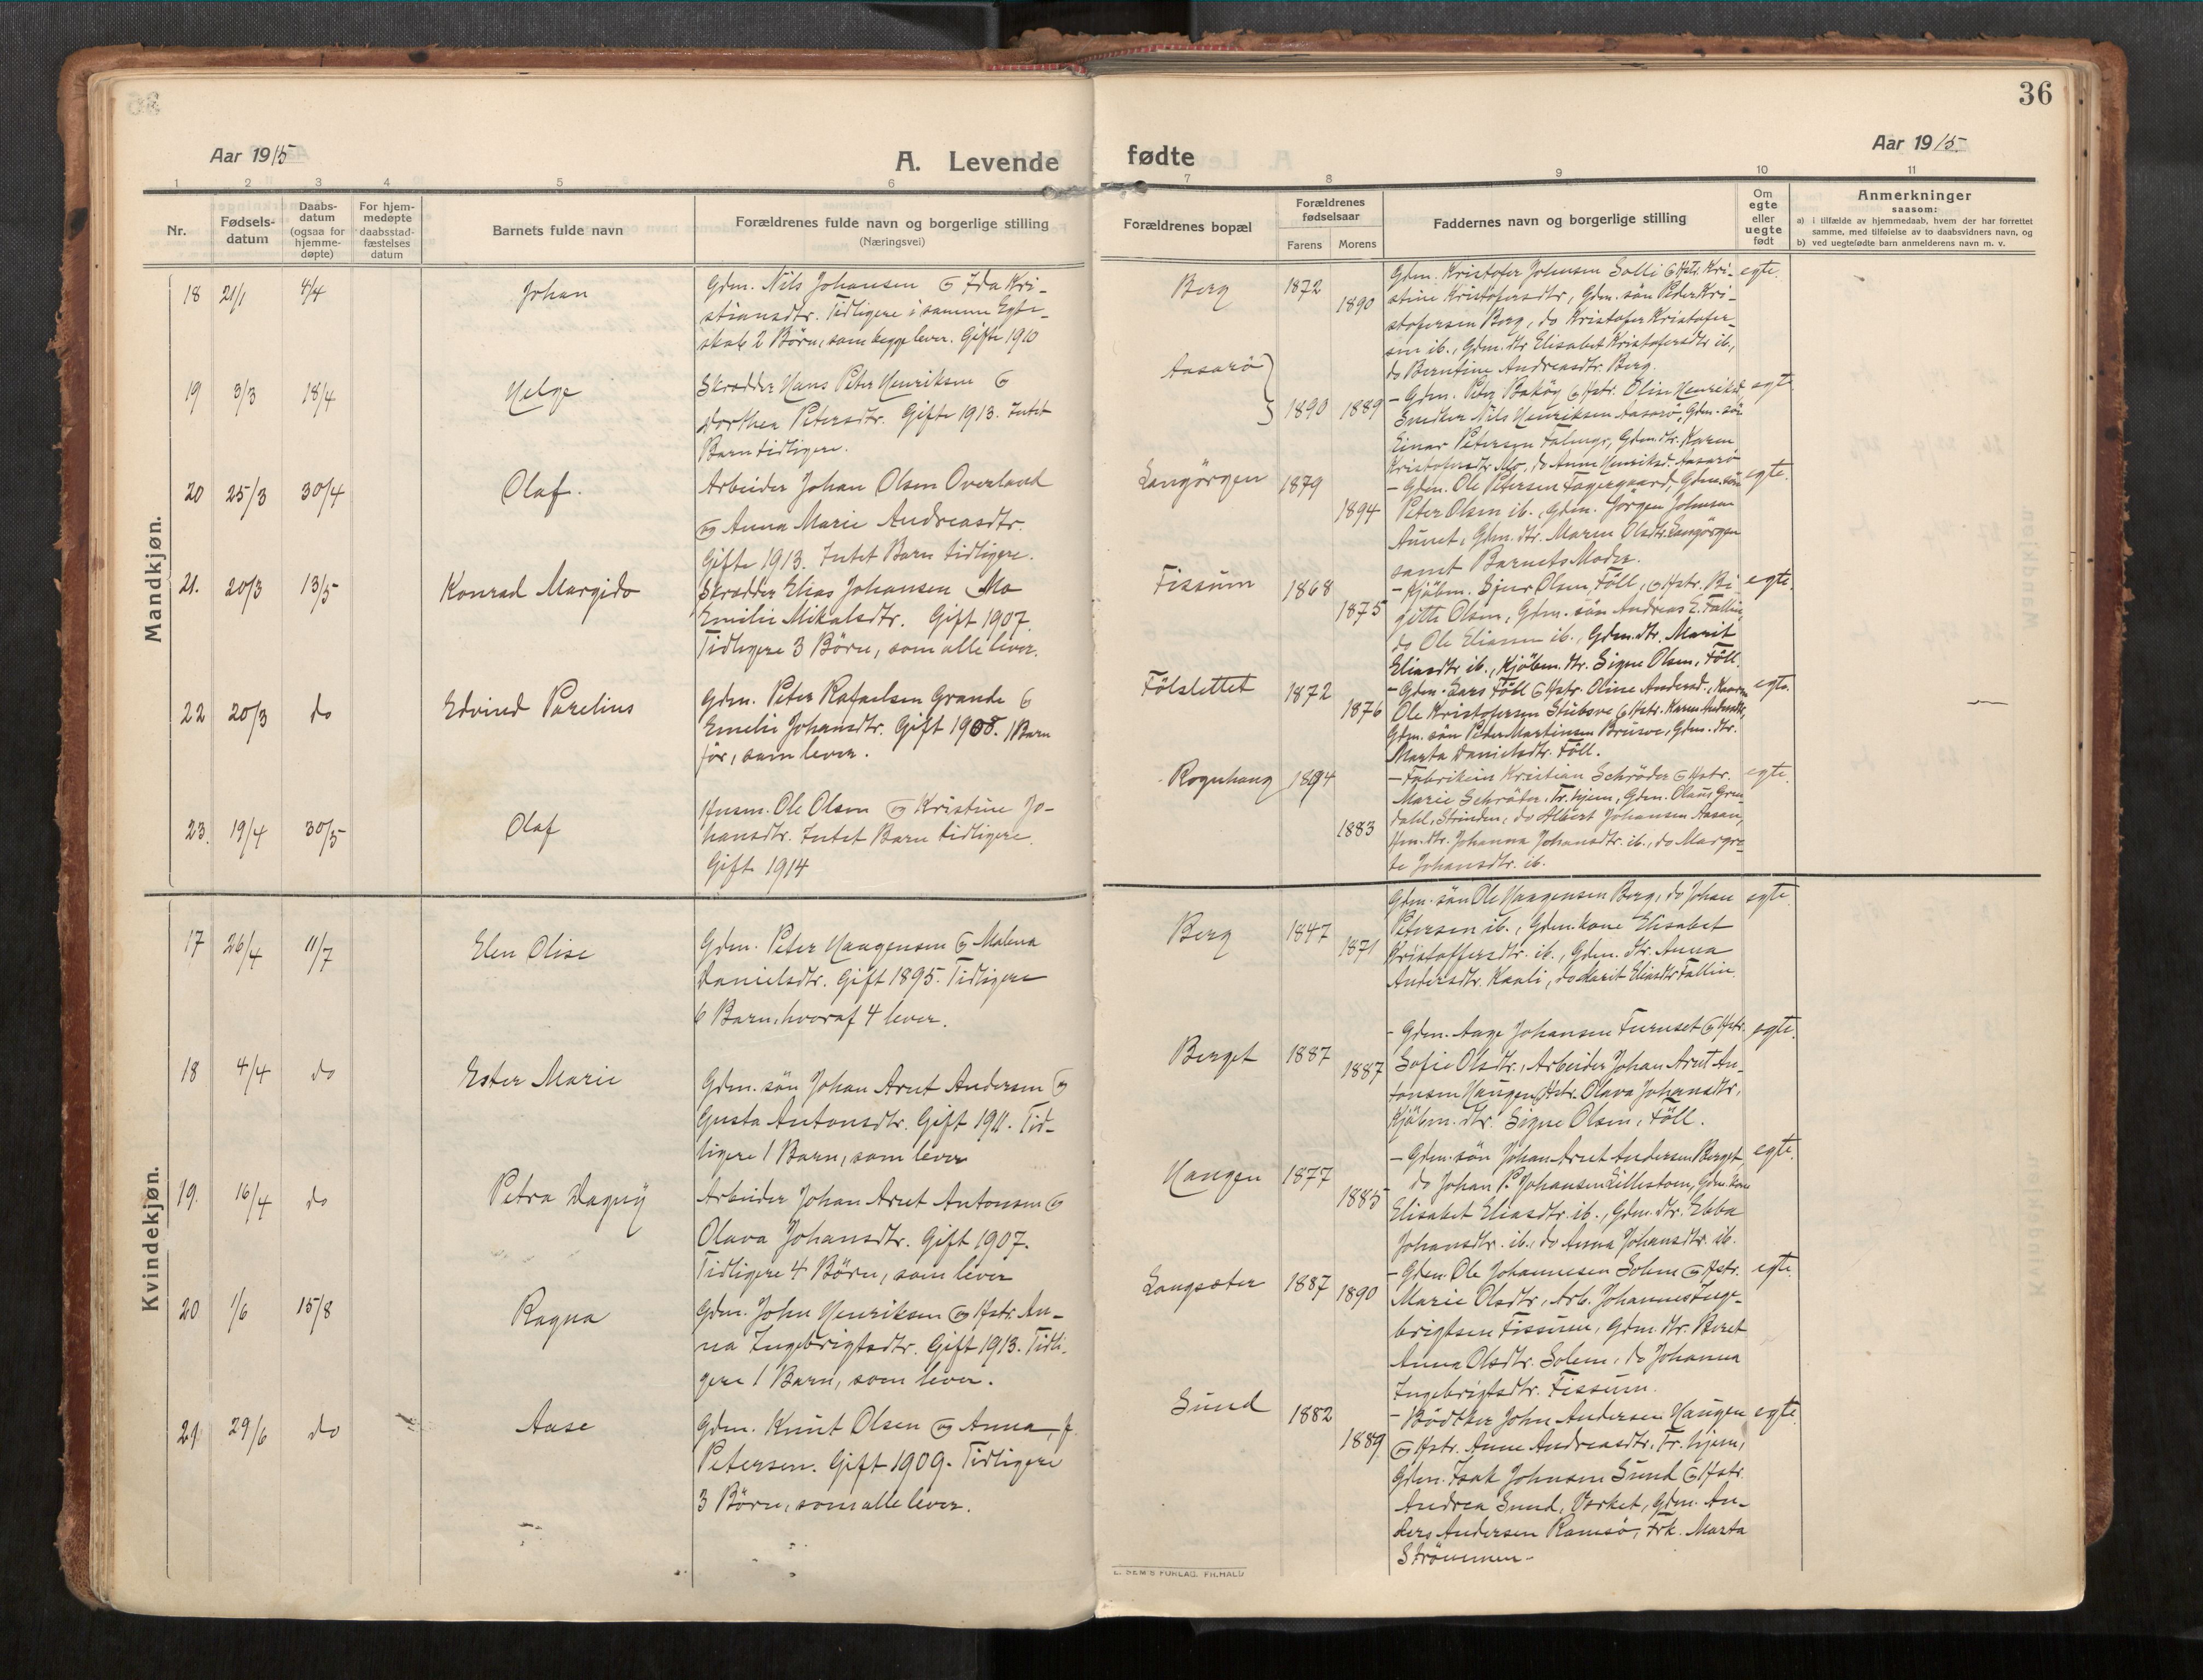 36
Aar 1915
A. Levende
fødte
Aar 1915.
1 2 3 4 5 6
7 8 9 10 11
Nr.
Fødsels-
datum
Daabs-
datum
(ogsaa for
hjemme-
døpte)
For hjem-
medøpte
daabsstad-
fæstelses
datum
Barnets fulde navn
Forældrenes fulde navn og borgerlige stilling
(Næringsvei)
Forældrenes bopæl
Forældrenes
fødselsaar
Farens Morens
Faddernes navn og borgerlige stilling
Om
egte
eller
uegte
født
Anmerkninger
saasom:
a) i tilfælde av hjemmedaab, hvem der har forrettet
samme, med tilføielse av to daabsvidners navn, og
b) ved uegtefødte barn anmelderens navn m. v.
Mandkjøn.
18 21/1 4/4 Johan
Gdm. Nils Johansen og Ida Kri-
stiansdtr. Tidligere i samme Egte-
skab 2 Börn, som begge lever. Gifte 1910
Berg 1872 1890
Gdm. Kristofer Johnsen Solli og Hstr. Kri-
stine Kristofersdtr, Gdm. sön Peder Kri-
stofersen Berg, do Kristofer Kristofer-
sen ib., Gdm. dtr Elisabet Kristofersdtr ib.,
do Berntine Andreasdtr. Berg.
egte.
19 3/3 18/4 Helge
Skrædder Hans Peter Henriksen og
Dorthea Petersdtr. Gifte 1913. Intet
Barn tidligere.
Aasarö 1890 1889
- Gdm. Peter Baköy og Hstr. Olin Henriksd,
Snedker Nils Henriksen Aasarö, Gdm. sön
Einar Petersen, Gdm. dtr. Karen
Kristofersdtr Mo, do Anne Henriksd. Aasarö
egte
20 25/3 30/4 Olaf.
Arbeider Johan Olsen Overland
og Anna Marie Andreasdtr.
Gifte 1913. Intet Barn tidligere.
Langörgen 1879 1894
- Gdm. Ole Petersen Fagergaard, Gdm. sön
Peter Olsen ib., Gdm. Jörgen Johnsen
Aunet, Gdm. dtr. Maren Olsdtr. Langörgen
samt Barnets Moder.
egte.
21. 20/3 13/5 Konrad Margido
Skrædder Elias Johansen Mo
Emilie Mikalsdtr. Gift 1907.
Tidligere 3 Börn, som alle lever.
Fissum 1868 1875
- Kjöbm. Sjur Olsen, Föll, og Hstr. Bi-
gitte Olsen, Gdm. sön Andreas E. Fallin,
do Ole Eliasen ib., Gdm. dtr. Marit
Eliasdtr ib., Kjöbm. dtr. Signe Olsen, Föll.
egte.
22 20/3 do Edvind Parelius
Gdm. Peter Rafaelsen Grande og
Emelie Johansdtr. Gift 1908. 1 Barn
för, som lever.
Fölslettet 1872 1876
- Gdm. Lars Föll og Hstr. Oline Andersd.,
Ole Kristofersen Stubsve og Hstr. Karen Andersdtr,
Gdm. sön Peder Martinsen Brusve, Gdm. dtr.
Marta Danielsdtr. Föll.
egte.
23. 19/4 30/5 Olaf
Husm. Ole Olsen og Kristine Jo-
hansdtr. Intet Barn tidligere.
Gift 1914
Rognhaug 1894 1883
- Fabrikeier Kristian Schröder og Hstr.
Marie Schröder, Tr.hjem, Gdm. Olaus Gren-
dahl, Strinden, do Albert Johansen Aasan,
Hm. dtr. Johanna Johansdtr. ib., do Margre-
te Johansdtr. ib.
egte.
Kvindekjøn.
17 26/4 11/7 Elen Olise
Gdm. Peter Haagensen og Malena
Danielsdtr. Gift 1895. Tidligere
6 Barn, hvoraf 4 lever.
Berg 1847 1871
Gdm. sön Ole Haagensen Berg, do Johan
Petersen ib., Gdm. kone Elisabet
Kristoffersdtr. ib., Gdm. dtr. Anna
Andersdtr. Kaali, do Marit Eliasdtr. Fallin.
egte
18 4/4 do Ester Marie
Gdm. sön Johan Arnt Andersen og
Gusta Antonsdtr. Gift 1911. Tid-
ligere 1 Barn, som lever
Berget 1887 1887
- Gdm. Aage Johansen Furuset og Hstr.
Sofie Olsdtr., Arbeider Johan Arnt An-
tonsen Haugen, Hstr. Olava Johansdtr,
Kjöbm. dtr. Signe Olsen, Föll.
egte.
19. 16/4 do Petra Dagny
Arbeider Johan Arnt Antonsen og
Olava Johansdtr. Gift 1907.
Tidligere 4 Börn, som lever
Haugen 1877 1885
- Gdm. sön Johan Arnt Andersen Berget,
do Johan P. Johansen, Gdm. kone
Elisabet Eliasdtr. ib., Gdm. dtr. Ebba
Johansdtr. ib., do Anna Johansdtr. ib.
egte.
20 1/6 15/8 Ragna
Gdm. John Henriksen og Hstr. An-
na Ingebrigtsdtr. Gift 1913. Tidli-
gere 1 Barn, som lever.
Langsæter 1887 1890
- Gdm. Ole Johannesen Solem og Hstr.
Marie Olsdtr, Arb. Johannes Inge-
brigtsen Fissum, Gdm. dtr. Beret
Anna Olsdtr. Solem, do Johanna
Ingebrigtsdtr. Fissum.
egte.
21 29/6 do Aase
Gdm. Knut Olsen og Anna, f.
Petersen. Gift 1909. Tidligere
3 Börn, som alle lever.
Sund 1882 1889
- Bödtker John Andersen Haugen
og Hstr. Anne Andreasdtr, Tr.hjem,
Gdm. Isak Johnsen Sund og Hstr.
Andrea Sund, Værket, Gdm. An-
ders Andersen Ramsö, Frk. Marta
Strömmen.
egte.
E. SEM'S FORLAG, FR.HALD